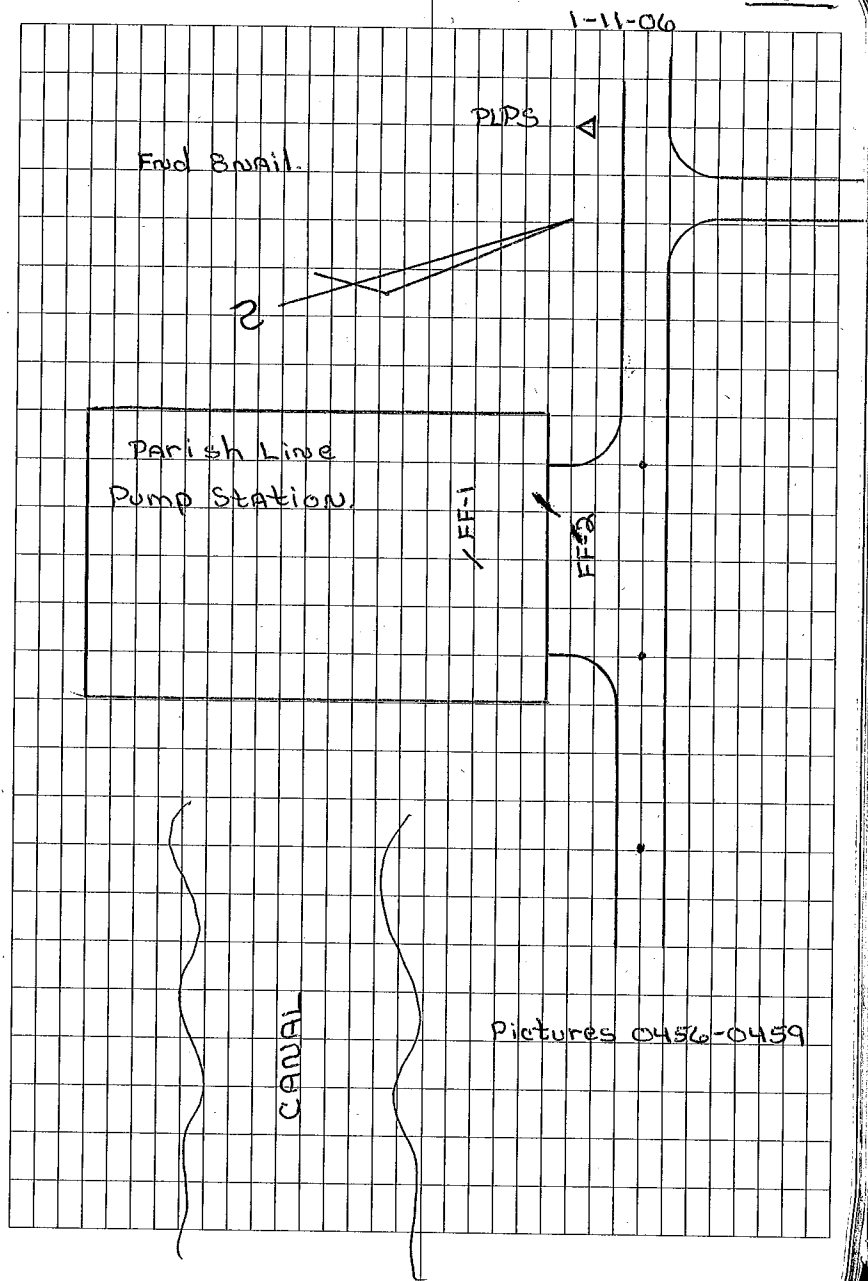 1-11-06
PLPS
Fnd 8 NAil.
Parish Line
Pump Station.
FF-1
FF-2
CANAL
Pictures 0456-0459